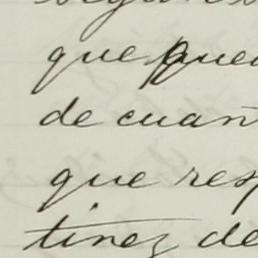 que pued
de cuan
que resp
tinez de